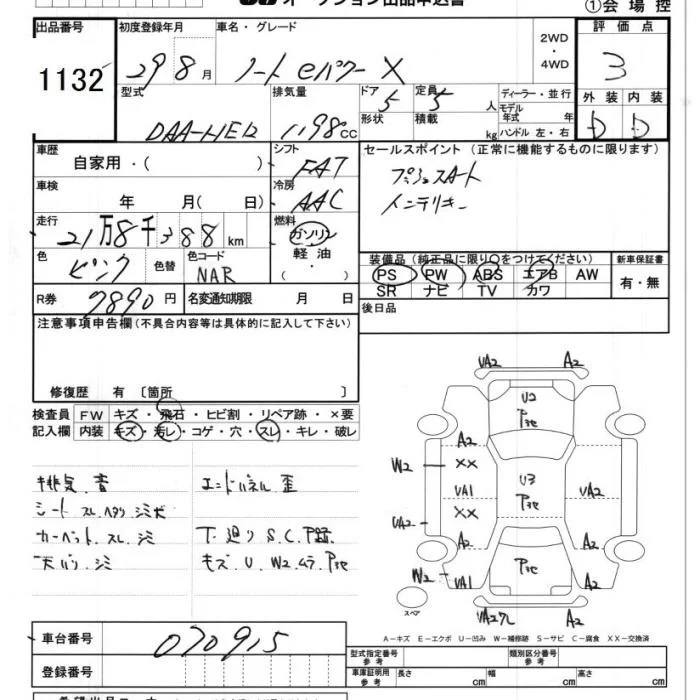 オークション出品申込書
①会場控
出品番号
1132
初度登録年月
29 8月
車名・グレード
ノート eパワー X
2WD
・
4WD
評価点
3
外装 内装
D D
型式
DAA-HE12
排気量
1198cc
ドア
5
定員
5人
形状
積載
kg
ディーラー・並行
モデル年式 年
ハンドル 左・右
車歴
自家用・( )
シフト
FAT
セールスポイント(正常に機能するものに限ります)
プッシュスタート
インテリキー
車検
年 月( 日)
冷房
AAC
走行
21万8千388km
燃料
ガソリン
軽油
・( )
色
ピンク
色替
色コード
NAR
装備品(純正品に限り○をつけてください)
PS PW ABS エアB AW
SR ナビ TV カワ
新車保証書
有・無
R券
7890円
名変通知期限 月 日
後日品
注意事項申告欄(不具合内容等は具体的に記入して下さい)
修復歴 有〔箇所 〕
検査員記入欄
FW キズ・飛石・ヒビ割・リペア跡・×要
内装 キズ・汚レ・コゲ・穴・スレ・キレ・破レ
排気音
シート スレ ヘタリ シミ大
カーペット スレ シミ
天バリ シミ
エンドパネル 歪
下廻り S.C.P跡
キズ.U.W2.ムラ.P3e
VA2 A2
U2
P3e
A2
XX
W2
VA1
U3
P3e
VA2
XX
VA2
A2 A2
W2
VA1
P3e
A2
スペア
VA2クレ A2
A−キズ E−エクボ U−凹み W−補修跡 S−サビ C−腐食 XX−交換済
車台番号
070915
登録番号
型式指定番号 参考
類別区分番号 参考
車庫証明用 参考
長さ cm
幅 cm
高さ cm